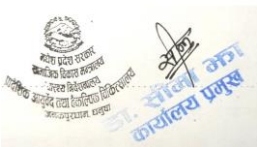 मधेश प्रदेश सरकार
सामाजिक विकास मन्त्रालय
स्वास्थ्य निर्देशनालय
प्रादेशिक आयुर्वेद तथा वैकल्पिक चिकित्सालय
जनकपुरधाम, धनुषा
डा. सीमा झा
कार्यालय प्रमुख